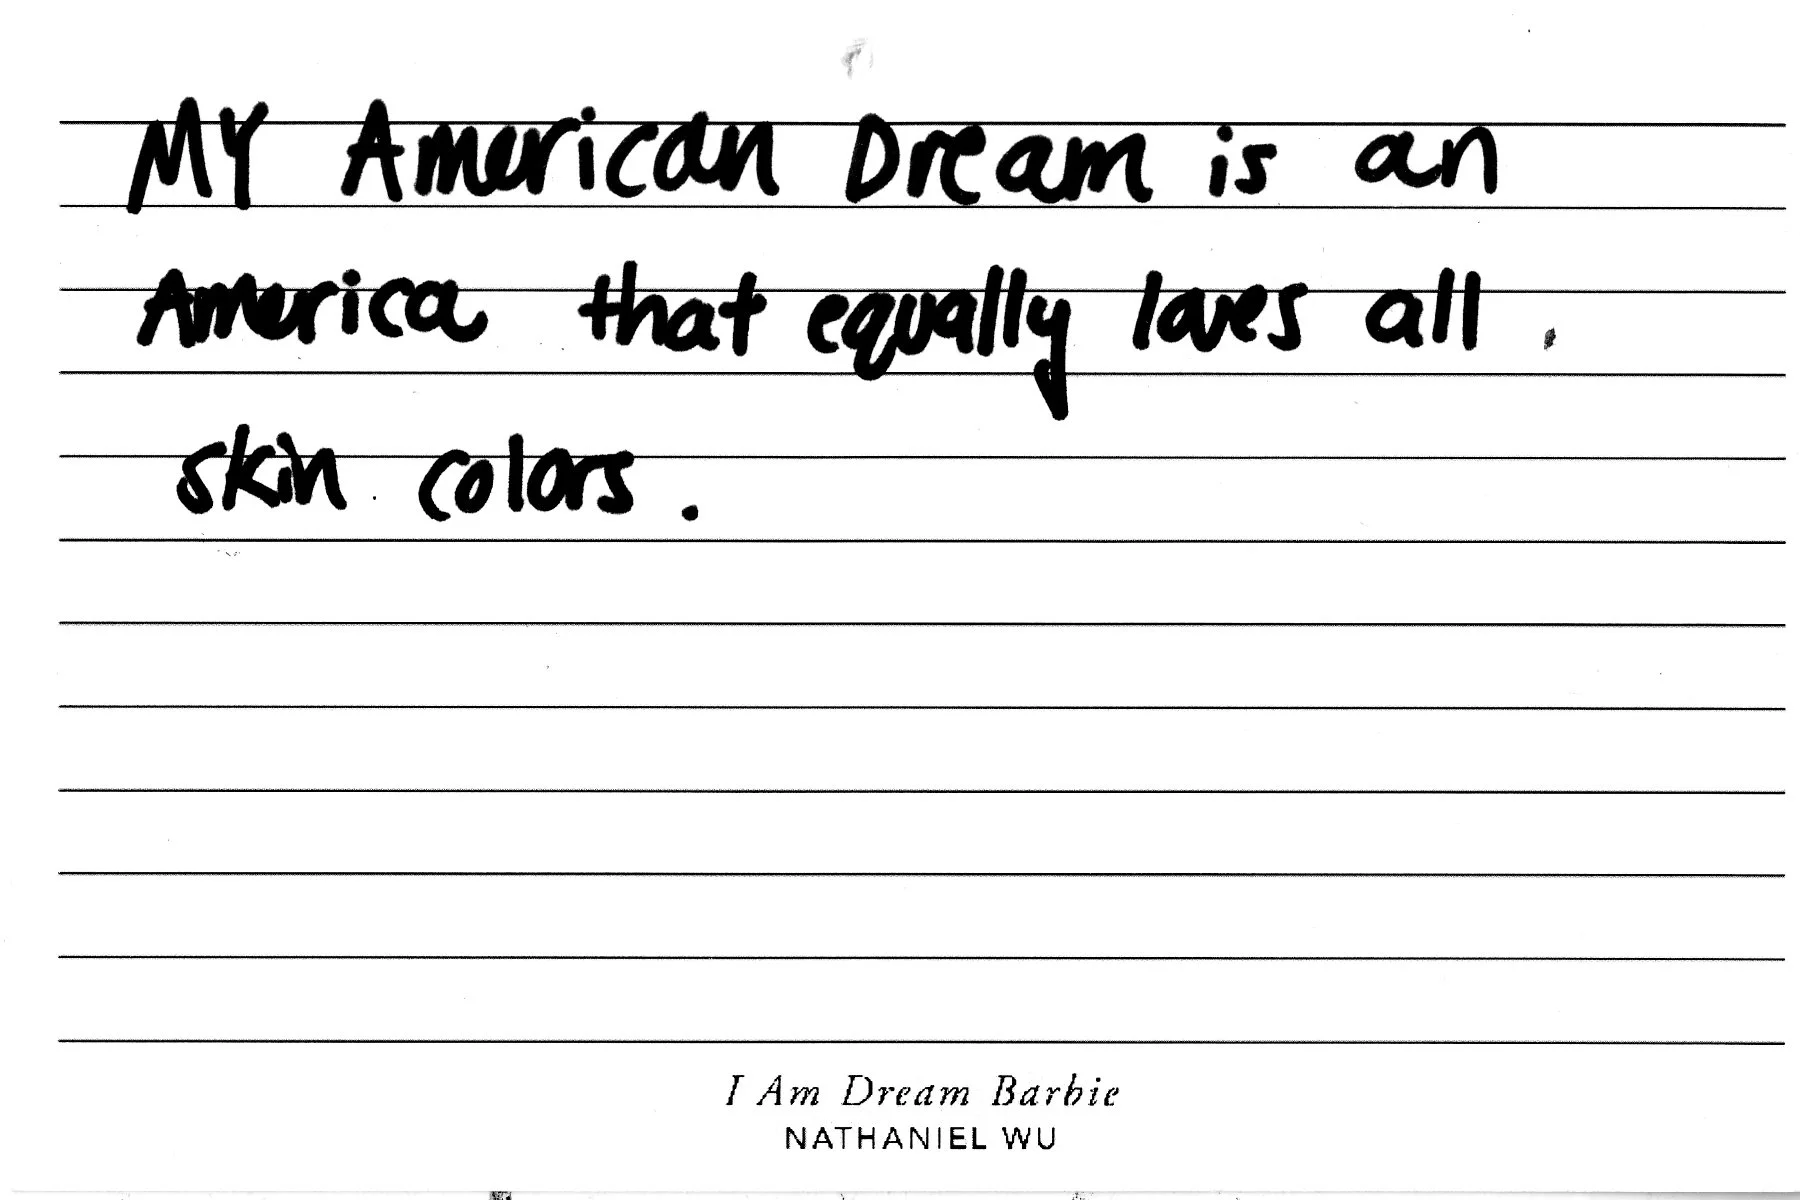 MY American Dream is an
America that equally loves all
skin colors.
I Am Dream Barbie
NATHANIEL WU